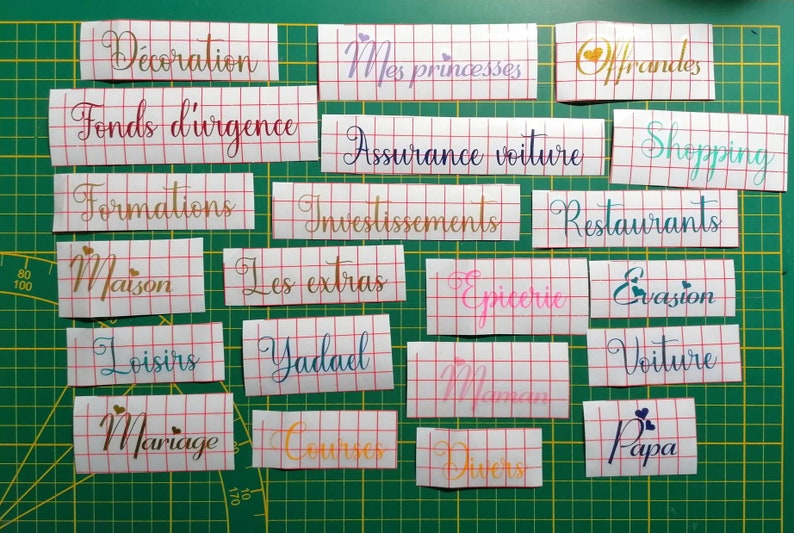 Décoration
Mes princesses
Offrandes
Fonds d'urgence
Assurance voiture
Shopping
Formations
Investissements
Restaurants
Maison
Les extras
Epicerie
Evasion
Loisirs
Yadael
Maman
Voiture
Mariage
Courses
Divers
Papa
80
100
170